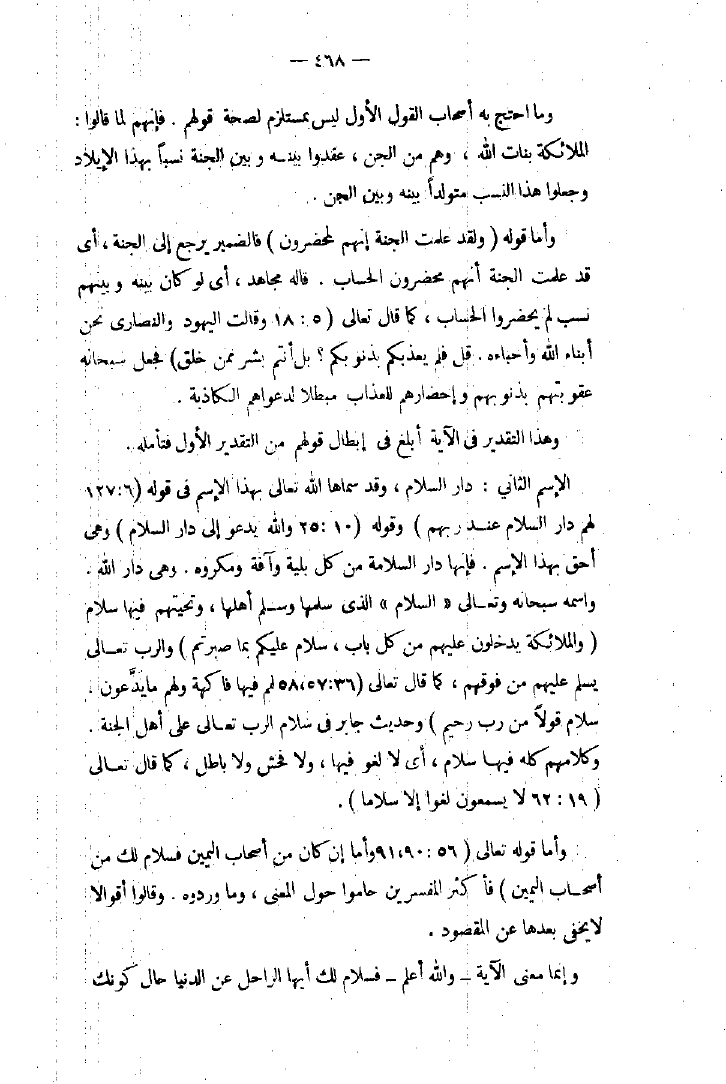 — ٤٦٨ —
وما احتج به أصحاب القول الأول ليس بمستلزم لصحة قولهم . فإنهم لما قالوا :
الملائكة بنات الله ، وهم من الجن ، عقدوا بينـه و بين الجنة نسباً بهذا الإيلاد
وجعلوا هذا النسب متولداً بينه وبين الجن .
وأما قوله ( ولقد علمت الجنة إنهم لمحضرون ) فالضمير يرجع إلى الجنة ، أى
قد علمت الجنة أنهم محضرون الحساب . قاله مجاهد ، أى لو كان بينه و بينهم
نسب لم يحضروا الحساب ، كما قال تعالى ( ٥ : ١٨ وقالت اليهود والنصارى نحن
أبناء الله وأحباءه . قل فلم يعذبكم بذنو بكم ؟ بل أنتم بشر ممن خلق) فجعل سبحانه
عقو بتهم بذنو بهم و إحضارهم للعذاب مبطلا لدعواهم الكاذبة .
وهذا التقدير فى الآية أبلغ فى إبطال قولهم من التقدير الأول فتأمله .
الإسم الثاني : دار السلام ، وقد سماها الله تعالى بهذا الإسم فى قوله (٦:١٢٧
لهم دار السلام عنـد ربهم ) وقوله (١٠ :٢٥ والله يدعو إلى دار السلام ) وهى
أحق بهذا الإسم . فإنها دار السلامة من كل بلية وآفة ومكروه . وهى دار الله .
واسمه سبحانه وتعـالى « السلام » الذى سلمها وسـلم أهلها ، وتحيتهم فيها سلام
( والملائكة يدخلون عليهم من كل باب ، سلام عليكم بما صبرتم ) والرب تعـالى
يسلم عليهم من فوقهم ، كما قال تعالى (٣٦:٥٧،٥٨ لهم فيها فاكهة ولهم مايدَّعون .
سلام قولاً من رب رحيم ) وحديث جابر فى سلام الرب تعـالى على أهل الجنة .
وكلامهم كله فيهـا سلام ، أى لا لغو فيها ، ولا فحش ولا باطل ، كما قال تعـالى
( ١٩ : ٦٢ لا يسمعون لغوا إلا سلاما ) .
وأما قوله تعالى ( ٥٦ :٩٠،٩١وأما إن كان من أصحاب اليمين فسلام لك من
أصحـاب اليمين ) فأ كثر المفسرين حاموا حول المعنى ، وما وردوه . وقالوا أقوالا
لايخفى بعدها عن المقصود .
و إنما معنى الآية ــ والله أعلم ــ فسلام لك أيها الراحل عن الدنيا حال كونك